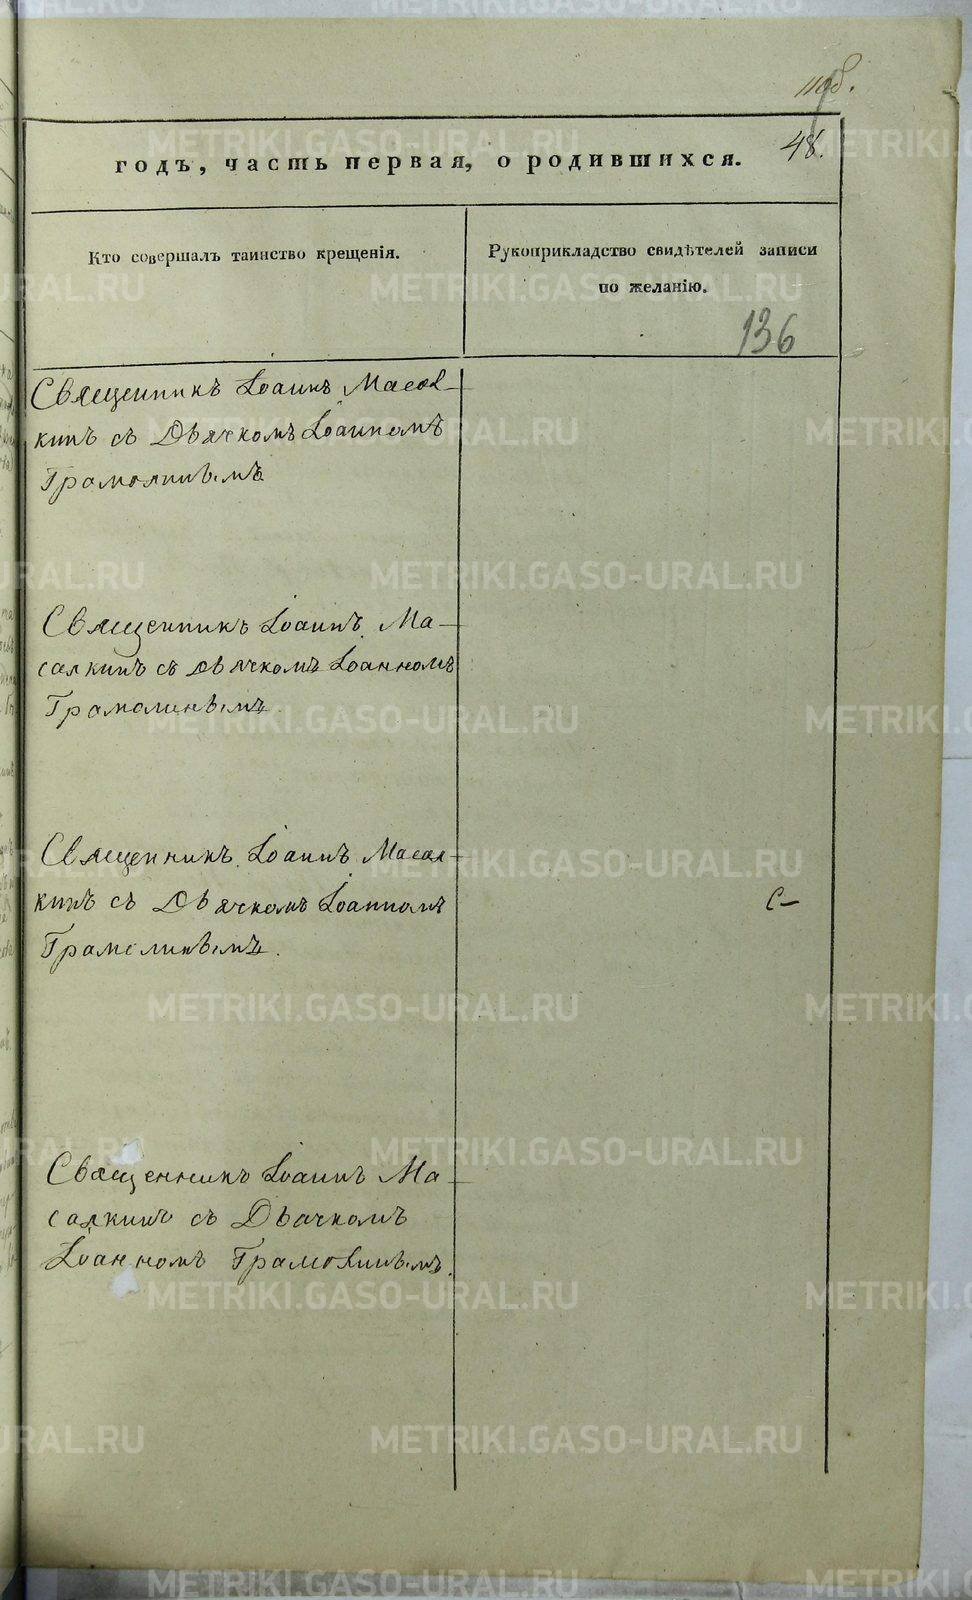 48.
годъ, часть первая, о родившихся.
Кто совершалъ таинство крещенія.
Рукоприкладство свидѣтелей записи
по желанію.
136
Священникъ Іоаннъ Масал-
кинъ съ Дьячкомъ Іоанномъ
Грамолинымъ
Священникъ Іоаннъ Ма-
салкинъ съ дьячкомъ Іоанномъ
Грамолинымъ.
Священникъ Іоаннъ Масал-
кинъ съ Дьячкомъ Іоанномъ
Грамолинымъ.
С-
Священникъ Іоаннъ Ма-
салкинъ съ Дьячкомъ
Іоанномъ Грамолинымъ.
METRIKI.GASO-URAL.RU